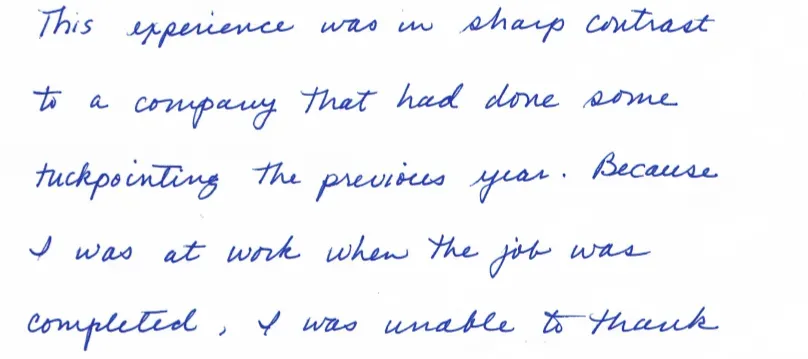 This experience was in sharp contrast
to a company that had done some
tuckpointing the previous year. Because
I was at work when the job was
completed, I was unable to thank